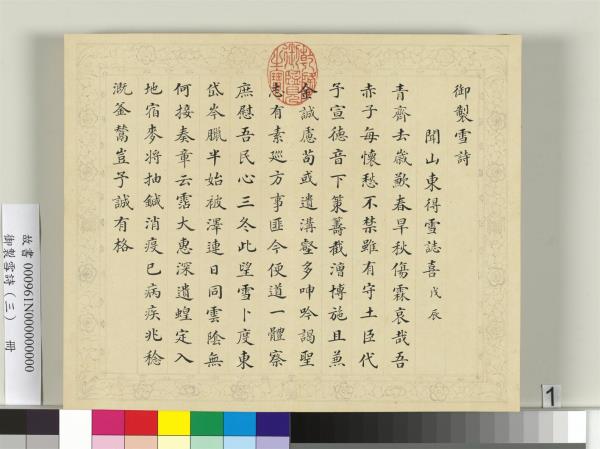 御製雪詩
聞山東得雪誌喜戊辰
青齊去歲歉春旱秋傷霖哀哉吾
赤子每懷愁不禁雖有守土臣代
予宣德音下策籌截漕博施且兼
金誠慮苟或遺溝壑多呻吟謁聖
志有素巡方事匪今便道一體察
庶慰吾民心三冬此望雪卜度東
岱岑臘半始被澤連日同雲陰無
何接奏章云霑大惠深遺蝗定入
地宿麥將抽鍼消疫已病疾兆稔
溉釜鬵豈予誠有格
故書000961N000000000
御製雪詩(三) 冊
1